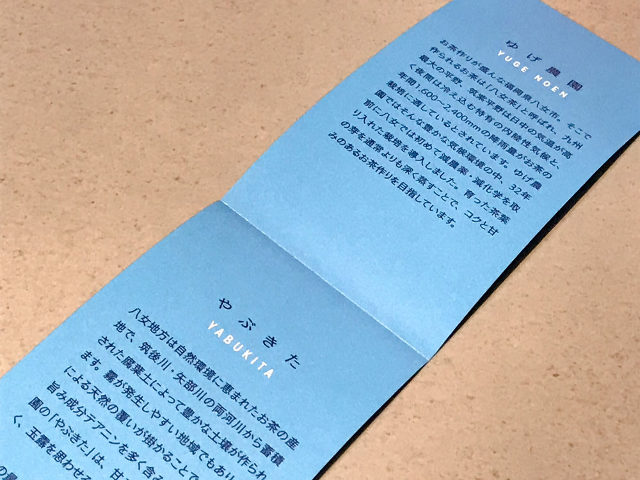 ゆげ農園
YUGE NOEN
お茶作りが盛んな福岡県八女市。そこで
作られるお茶は「八女茶」と呼ばれ、九州
最大の平野、筑紫平野は日中の気温が高
く夜間は冷え込む特有の内陸性気候と、
年間1,600〜2,400mmの降雨量がお茶の
栽培に適しているとされています。ゆげ農
園ではそんな豊かな気候環境の中、32年
前に八女では初めて減農薬・減化学を取
り入れた栽培を導入しました。育った茶葉
の芽を通常よりも深く蒸すことで、コクと甘
みのあるお茶作りを目指しています。
やぶきた
YABUKITA
八女地方は自然環境に恵まれたお茶の産
地で、筑後川・矢部川の両河川から蓄積
された腐葉土によって豊かな土壌が作られ
ます。霧が発生しやすい地域でもあり
による天然の覆いが掛かることで
旨み成分テアニンを多く含み
園の「やぶきた」は、甘
く、玉露を思わせる
の最